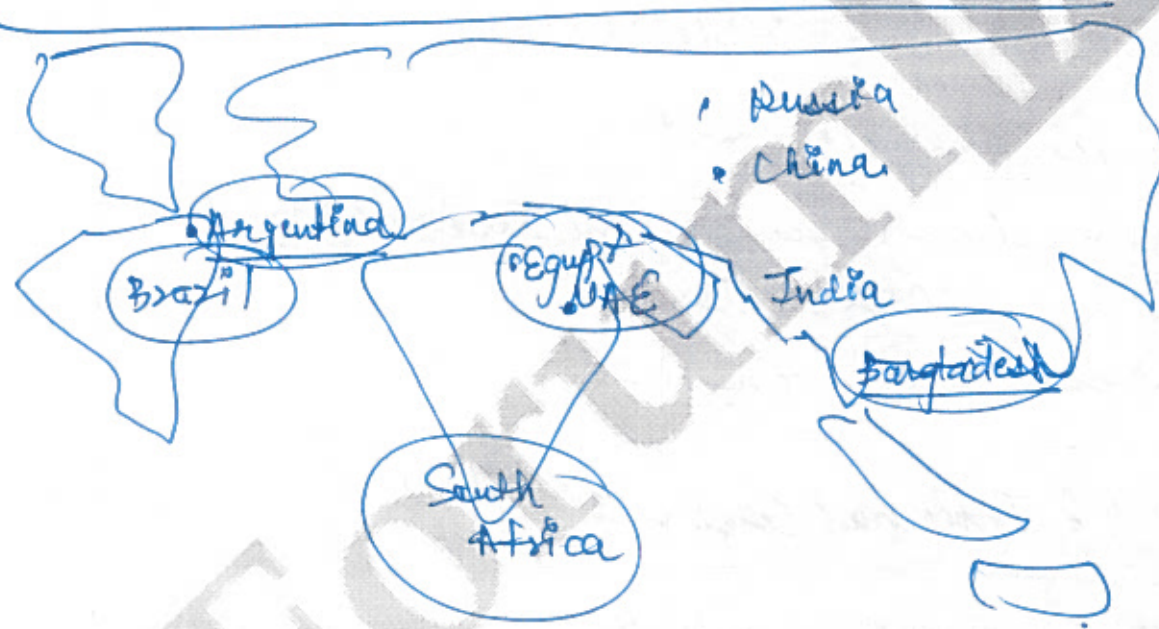 • Russia
• China
• Argentina
Brazil
• Egypt
• UAE
India
Bangladesh
South
Africa